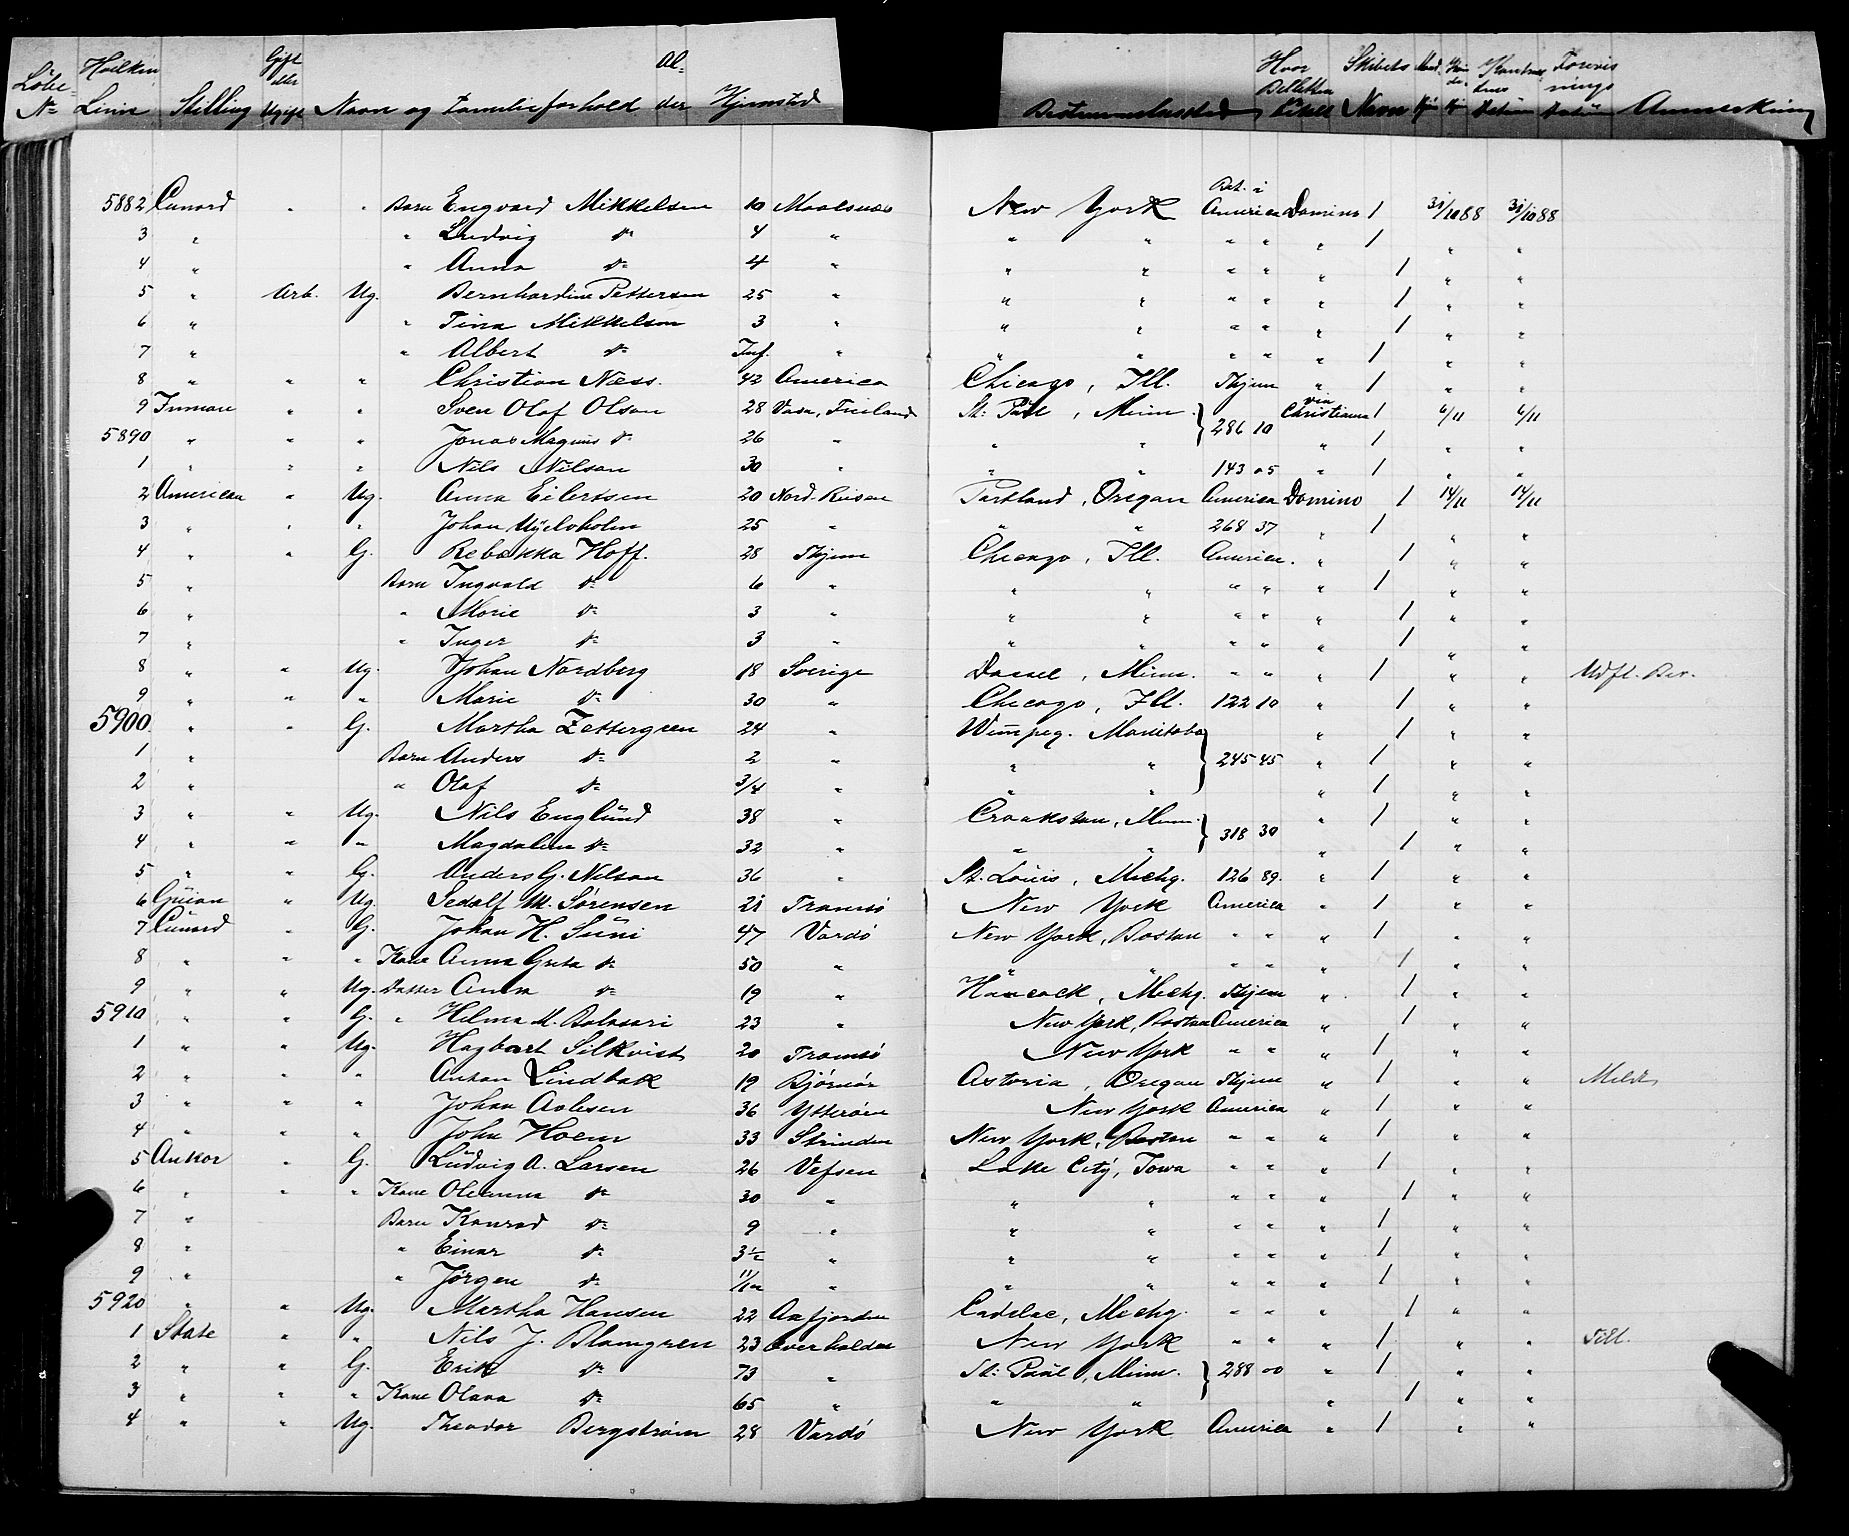 Løbe- No Hvilken Linie Stilling Gift eller Ugift Navn og Familieforhold Alder Hjemsted Bestemmelsessted Hvor Billetten betalt Skibets Navn Mand kjøn Kvindekjøn Kontraktens Datum Forevisnings Datum Anmerkning
5882 Cunard " " Barn Engvard Mikkelsen 10 Maalsnæs New York Bet. i America Domino 1 31/10 88 31/10 88
3 " " Ludvig do 4 " " " " " " 1 " "
4 " " Anna do 4 " " " " " " 1 " "
5 " Arb. Ug. Bernhardine Pettersen 25 " " " " " " 1 " "
6 " " Tina Mikkelsen 3 " " " " " " 1 " "
7 " " Albert do Inf. " " " " " " 1 " "
8 " " " Christian Næss. 42 America Chicago, Ill. Thjem " 1 " "
9 Inman " " Sven Olof Olson 28 Vasa, Finland St: Paul, Minn. } 286 10 via Christiania 1 6/11 6/11
5890 " " " Jonas Magnus do 26 " " " " 1 " "
1 " " " Nils Nilson 30 " " " 143 05 " 1 " "
2 American " Ug. Anna Eilertsen 20 Nord-Reisen Portland, Oregon America Domino 1 14/11 14/11
3 " " " Johan 25 " " " 268 37 " 1 " "
4 " " G. Rebekka Hoff. 28 Thjem Chicago, Ill. America. " 1 " "
5 " Barn Ingvald do 6 " " " " " " 1 " "
6 " " Marie do 3 " " " " " " 1 " "
7 " " Inger do 3 " " " " " " 1 " "
8 " " Ug. Johan Nordberg 18 Sverige Dassel, Minn. " " " 1 " " Udfl. Bev.
9 " " " Marie do 30 " Chicago, Ill. 122 10 " 1 " "
5900 " " G. Martha Zettergren 24 " Winnipeg. Manitoba } 245 45 " 1 " "
1 " Barn Anders do 2 " " " " 1 " "
2 " " Olaf do 3/4 " " " " 1 " "
3 " " Ug. Nils Englund 38 " Crookston, Minn. } 318 30 " 1 " "
4 " " " Magdalena do 32 " " " " 1 " "
5 " " G. Anders G. Nilson 36 " St. Louis, Michg. 126 89. " 1 " "
6 Guion " Ug. Sedolf M. Sørensen 21 Tromsø New York America " 1 " "
7 Cunard " G. Johan H. Suni 47 Vardø New York, Boston " " " 1 " "
8 " " " Kone Anna Greta do 50 " " " " " " 1 " "
9 " " Ug. Datter Anna do 19 " Hancock, Michg. Thjem " 1 " "
5910 " " G. " Hilma M. Balasari 23 " New York, Boston America " 1 " "
1 " " Ug. Hagbart Silkvist 20 Tromsø New York " " " 1 " "
2 " " " Anton Lindbak 19 Bjørnør Astoria, Oregon Thjem " 1 " " Meldt
3 " " " Johan Aalesen 36 Ytterøen New York America " 1 " "
4 " " " John Hoem 33 Strinden New York, Boston " " " 1 " "
5 Ankor " G. Ludvig A. Larsen 26 Vefsen Lake City, Iowa " " " 1 " "
6 " " " Kone Oleanna do 30 " " " " " " 1 " "
7 " Barn Konrad do 9 " " " " " " 1 " "
8 " " Einar do 3 1/2 " " " " " " 1 " "
9 " " Jørgen do 11/12 " " " " " " 1 " "
5920 " " Ug. Martha Hansen 22 Aafjorden Cadilac, Michg. " " " 1 " "
1 State " " Nils J. Blomgren 23 Overhalden New York " " " 1 " " Till.
2 " " G. Erik do 73 " St: Paul, Minn. } 288 00 " 1 " "
3 " " " Kone Olava do 65 " " " " 1 " "
4 " " Ug. Theodor Bergstrøm 28 Vardø New York America " 1 " "